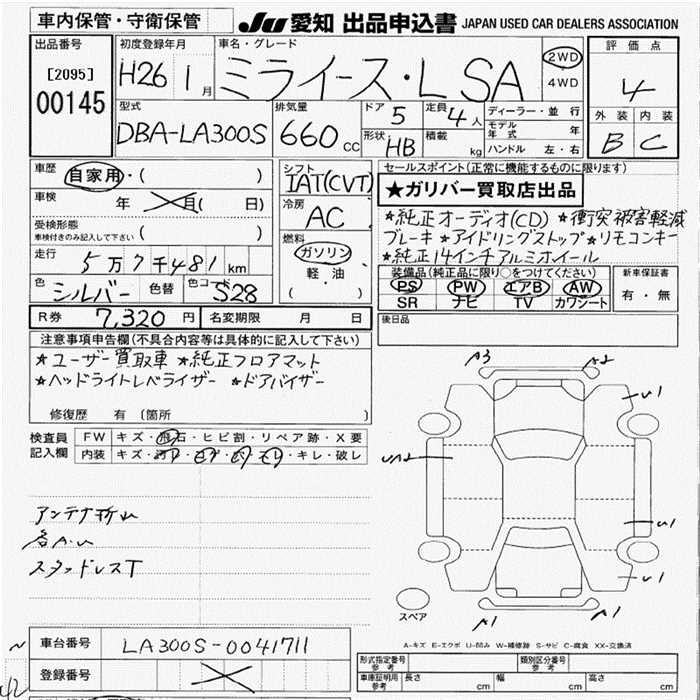 車内保管・守衛保管
JU 愛知 出品申込書 JAPAN USED CAR DEALERS ASSOCIATION
出品番号
[2095]
00145
初度登録年月
H26 1 月
車名・グレード
ミライース・L SA
2WD
4WD
評価点
4
外装 内装
B C
型式
DBA-LA300S
排気量
660 cc
ドア 5
定員 4 人
形状 HB
積載 kg
ディーラー・並行
モデル年式 年
ハンドル 左・右
車歴 自家用・( )
車検 年 月( 日)
受検形態
車検付きのみ記入して下さい ( )
走行 5万7千481km
色 シルバー 色替 色コード S28
R券 7,320 円 名変期限 月 日
シフト
IAT(CVT)
冷房
AC
燃料
ガソリン
軽油
( )
セールスポイント(正常に機能するものに限ります)
★ガリバー買取店出品
★純正オーディオ(CD) ★衝突被害軽減
ブレーキ★アイドリングストップ★リモコンキー
★純正14インチアルミホイール
装備品(純正品に限り○をつけてください)
PS PW エアB AW
SR ナビ TV カワシート
新車保証書
有・無
後日品
注意事項申告欄(不具合内容等は具体的に記入して下さい)
★ユーザー買取車 ★純正フロアマット
★ヘッドライトレベライザー ★ドアバイザー
修復歴 有 (箇所 )
検査員
記入欄
FW キズ・飛石・ヒビ割・リペア跡・X要
内装 キズ・ ・コゲ・ ・ヨレ・キレ・破レ
アンテナ折レ
各A.U
スタッドレスT
A3 A2
U1
UA2
U1
U1
A1 A1
スペア
A-キズ E-エクボ U-凹み W-補修跡 S-サビ C-腐食 XX-交換済
車台番号 LA300S-0041711
登録番号
形式指定番号 参考
類別区分番号 参考
車庫証明用 参考 長さ cm 幅 cm 高さ cm